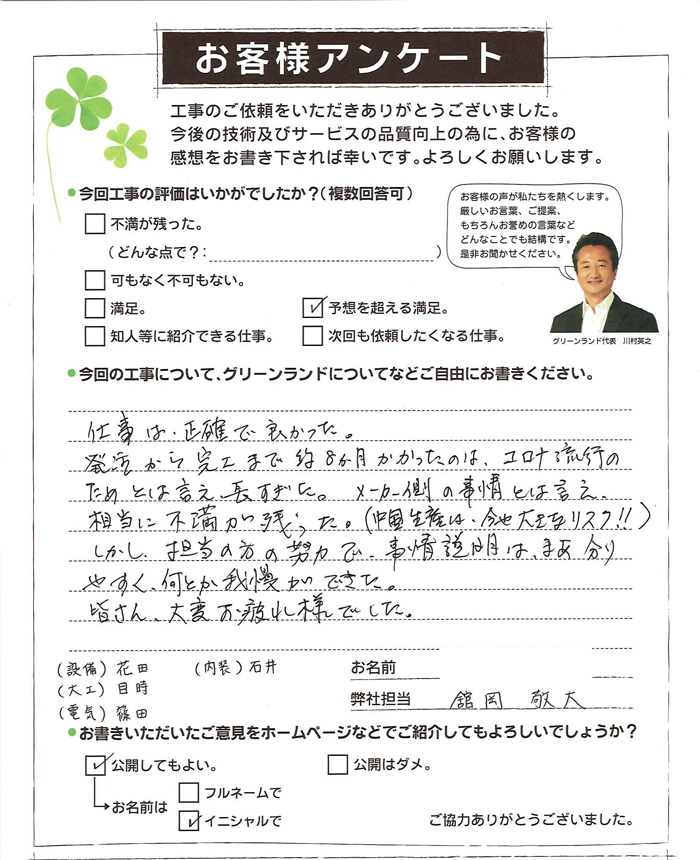 お客様アンケート
工事のご依頼をいただきありがとうございました。
今後の技術及びサービスの品質向上の為に、お客様の
感想をお書き下されば幸いです。よろしくお願いします。
●今回工事の評価はいかがでしたか?(複数回答可)
お客様の声が私たちを熱くします。
厳しいお言葉、ご提案、
もちろんお誉めの言葉など
どんなことでも結構です。
是非お聞かせください。
グリーンランド代表 川村英之
不満が残った。
(どんな点で?: )
可もなく不可もない。
満足。 ✓予想を超える満足。
知人等に紹介できる仕事。 次回も依頼したくなる仕事。
●今回の工事について、グリーンランドについてなどご自由にお書きください。
仕事は、正確で良かった。
発注から完工まで約8か月かかったのは、コロナ流行の
ためとは言え、長すぎた。 メーカー側の事情とは言え、
相当に不満が残った。(中国生産は、今や大きなリスク!!)
しかし、担当の方の努力で、事情説明は、まあ分り
やすく、何とか我慢ができた。
皆さん、大変お疲れ様でした。
(設備) 花田 (内装) 石井
(大工) 目時
(電気) 篠田
お名前
弊社担当 舘岡 敬大
●お書きいただいたご意見をホームページなどでご紹介してもよろしいでしょうか?
✓公開してもよい。 公開はダメ。
お名前は フルネームで
✓イニシャルで
ご協力ありがとうございました。